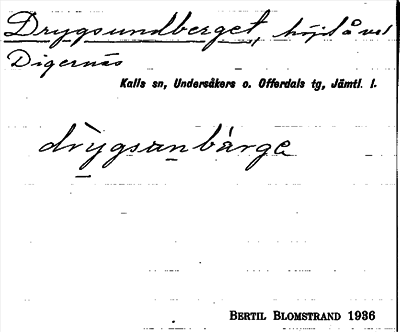 Drygsundberget, höjd å vid
Digernäs
Kalls sn, Undersåkers o. Offerdals tg, Jämtl. l.
drỳgsanbárge
BERTIL BLOMSTRAND 1936